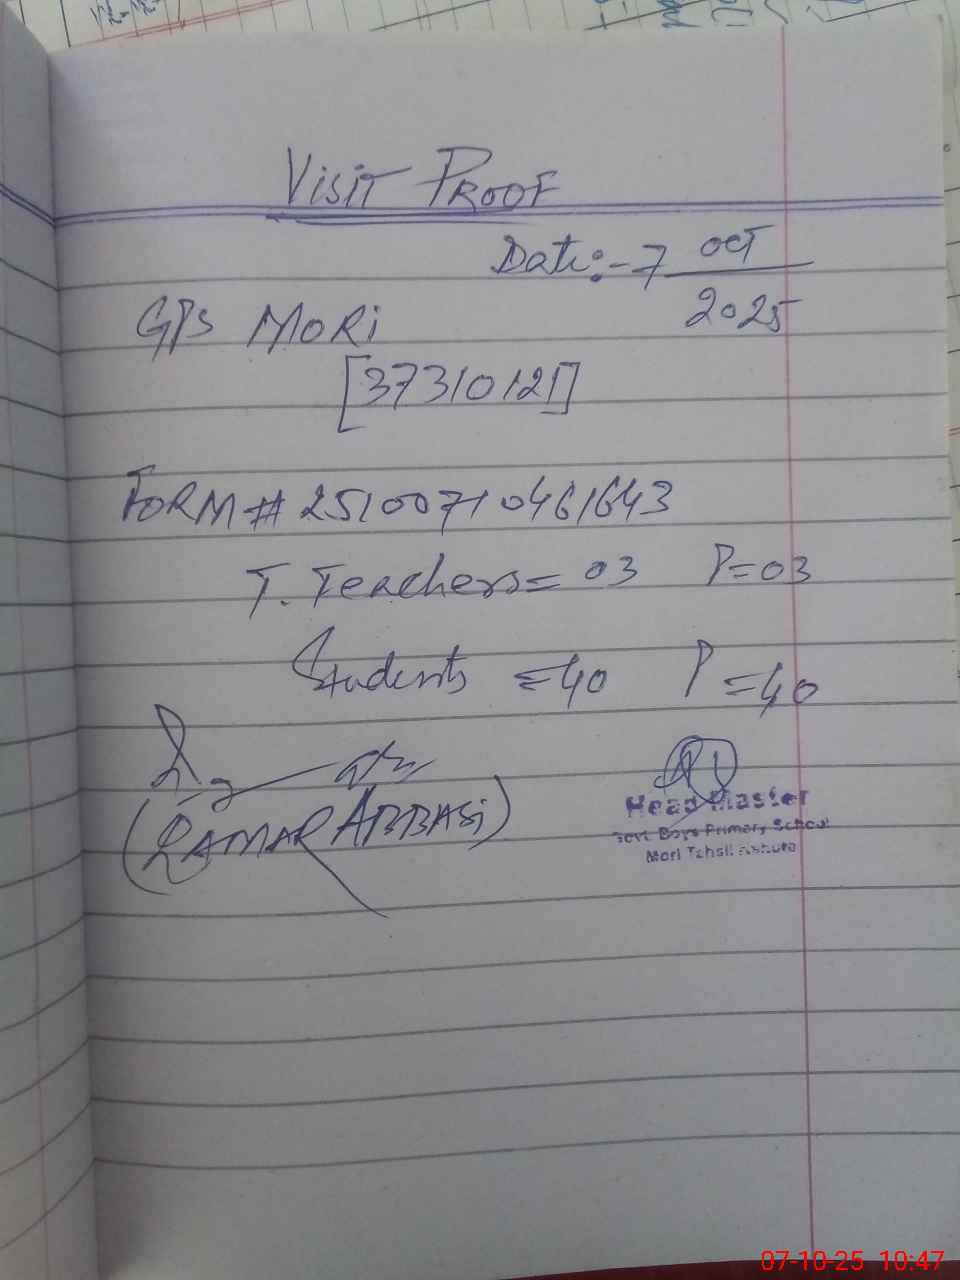 VISIT PROOF
Date:- 7 OCT
2025
GPS MORI
[37310121]
FORM# 25100710461643
T. Teachers = 03 P=03
Students = 40 P = 40
(QAMAR ABBASI)
Head Master
Govt. Boys Primary School
Mori Tehsil
07-10-25 10:47